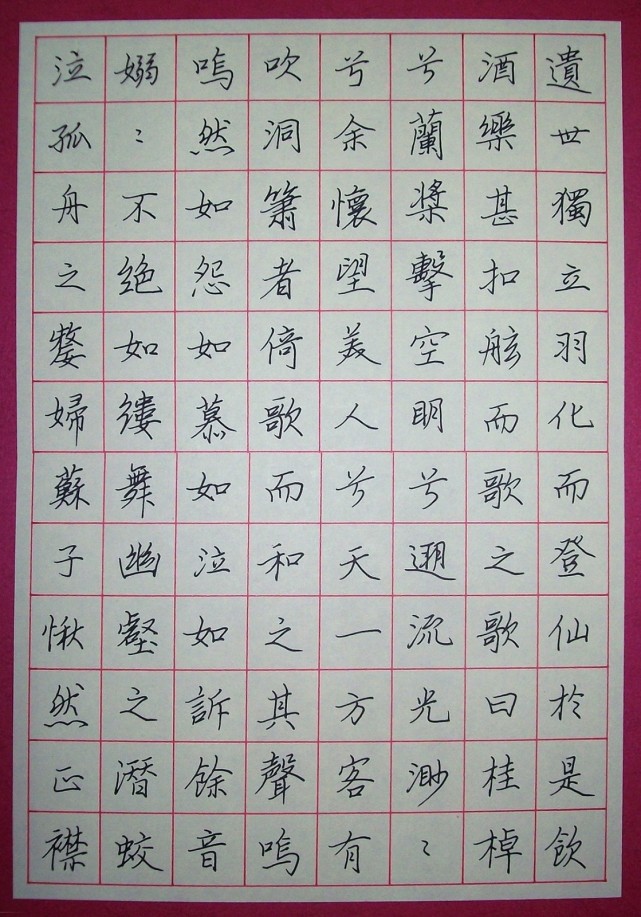 遺世獨立羽化而登仙於是飲
酒樂甚扣舷而歌之歌曰桂棹
兮蘭槳擊空明兮遡流光渺〻
兮余懷望美人兮天一方客有
吹洞簫者倚歌而和之其聲嗚
嗚然如怨如慕如泣如訴餘音
嫋〻不绝如縷舞幽壑之潛蛟
泣孤舟之嫠婦蘇子愀然正襟